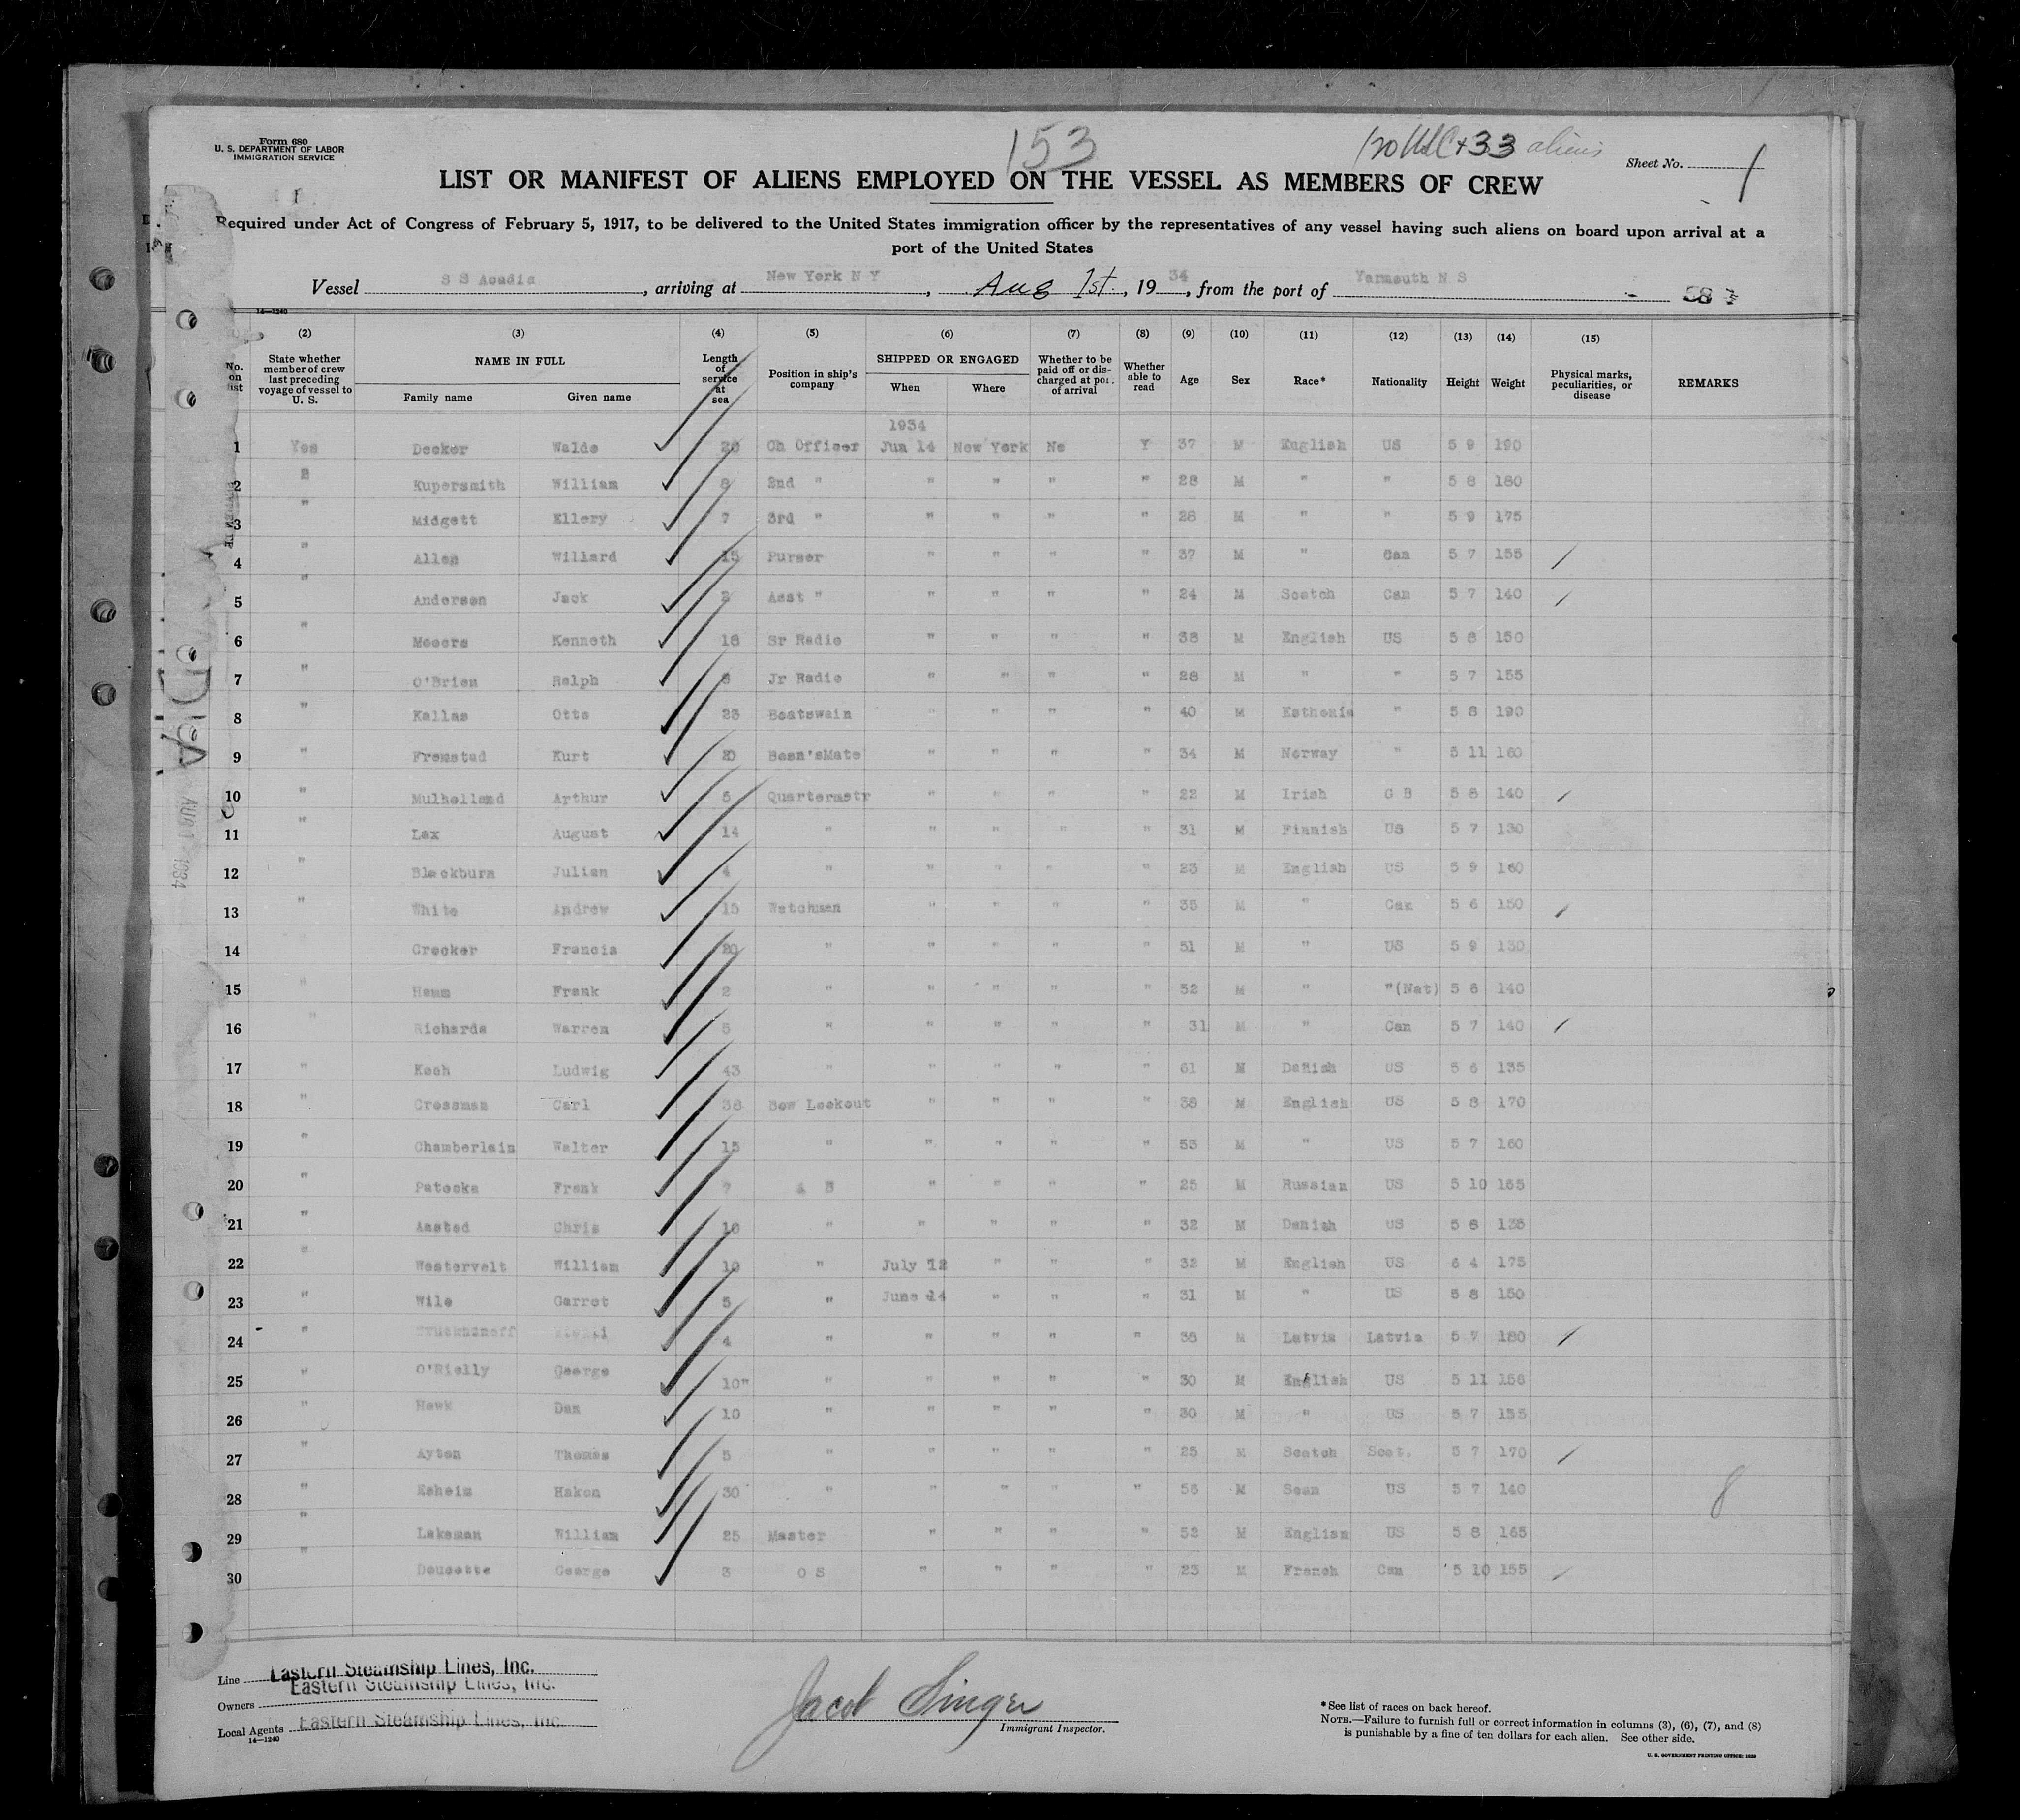 153
120 USC + 33 aliens
Form 680
U. S. DEPARTMENT OF LABOR
IMMIGRATION SERVICE
Sheet No. 1
LIST OR MANIFEST OF ALIENS EMPLOYED ON THE VESSEL AS MEMBERS OF CREW
Required under Act of Congress of February 5, 1917, to be delivered to the United States immigration officer by the representatives of any vessel having such aliens on board upon arrival at a
port of the United States
Vessel S S Acadia, arriving at New York N Y, Aug 1st, 1934, from the port of Yarmouth N S
14—1240
(2) (3) (4) (5) (6) (7) (8) (9) (10) (11) (12) (13) (14) (15)
No. on list State whether member of crew last preceding voyage of vessel to U. S. NAME IN FULL Family name Given name Length of service at sea Position in ship's company SHIPPED OR ENGAGED When Where Whether to be paid off or discharged at port of arrival Whether able to read Age Sex Race* Nationality Height Weight Physical marks, peculiarities, or disease REMARKS
1934
1 Yes Decker Waldo 20 Ch Officer Jun 14 New York No Y 37 M English US 5 9 190
2 " Kupersmith William 8 2nd " " " " " 28 M " " 5 8 180
3 " Midgett Ellery 7 3rd " " " " " 28 M " " 5 9 175
4 " Allen Willard 15 Purser " " " " 37 M " Can 5 7 155 /
5 " Anderson Jack 2 Asst " " " " " 24 M Scotch Can 5 7 140 /
6 " Moore Kenneth 18 Sr Radio " " " " 38 M English US 5 8 150
7 " O'Brien Ralph 8 Jr Radio " " " " 28 M " " 5 7 155
8 " Kallas Otto 23 Boatswain " " " " 40 M Esthonia " 5 8 190
9 " Fromstad Kurt 20 Bosn'sMate " " " " 34 M Norway " 5 11 160
10 " Mulholland Arthur 5 Quartermstr " " " " 22 M Irish G B 5 8 140 /
11 " Lax August 14 " " " " " 31 M Finnish US 5 7 130
12 " Blackburn Julian 4 " " " " " 23 M English US 5 9 160
13 " White Andrew 15 Watchman " " " " 35 M " Can 5 6 150 /
14 Crocker Francis 20 " " " " " 51 M " US 5 9 130
15 " Hamm Frank 2 " " " " " 52 M " "(Nat) 5 6 140
16 " Richards Warren 5 " " " " " 31 M " Can 5 7 140 /
17 " Koch Ludwig 43 " " " " " 61 M Danish US 5 6 135
18 " Crossman Carl 38 Bow Lookout " " " " 38 M English US 5 8 170
19 " Chamberlain Walter 15 " " " " " 53 M " US 5 7 160
20 " Patocka Frank 7 A B " " " " 25 M Russian US 5 10 165
21 " Aasted Chris 10 " " " " " 32 M Danish US 5 8 135
22 " Westervelt William 10 " July 12 " " " 32 M English US 6 4 175
23 " Wile Garret 5 " June 14 " " " 31 M " US 5 8 150
24 " 4 " " " " " 35 M Latvia Latvia 5 7 180 /
25 " O'Rielly George 10" " " " " " 30 M English US 5 11 156
26 " Hawk Dan 10 " " " " " 30 M " US 5 7 155
27 " Ayton Thomas 5 " " " " " 25 M Scotch Scot. 5 7 170 /
28 " Esheim Hakon 30 " " " " " 55 M Scan US 5 7 140
29 " Lakeman William 25 Master " " " " 52 M English US 5 8 165
30 " Doucette George 3 O S " " " " 23 M French Can 5 10 155 /
8
AUG 1 1934
Line Eastern Steamship Lines, Inc.
Owners Eastern Steamship Lines, Inc.
Local Agents Eastern Steamship Lines, Inc.
14—1240
Jacob Singer
Immigrant Inspector.
*See list of races on back hereof.
NOTE.—Failure to furnish full or correct information in columns (3), (6), (7), and (8)
is punishable by a fine of ten dollars for each alien. See other side.
U. S. GOVERNMENT PRINTING OFFICE